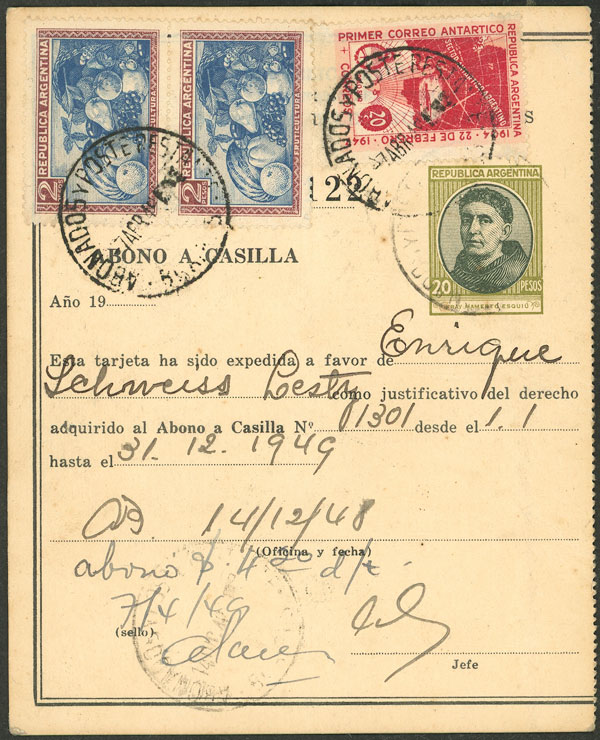 REPUBLICA ARGENTINA
2 PESOS
FRUTICULTURA
REPUBLICA ARGENTINA
2 PESOS
FRUTICULTURA
PRIMER CORREO ANTARTICO
REPUBLICA ARGENTINA
20
1904 - 22 DE FEBRERO - 1947
ABONADOS Y POSTE RESTANTE
7 ABR
ABONADOS Y POSTE RESTANTE
7 ABR
122
REPUBLICA ARGENTINA
20 PESOS
FRAY MAMERTO ESQUIÚ
ABONO A CASILLA
Año 19
Esta tarjeta ha sido expedida a favor de Enrique
Schweiss como justificativo del derecho
adquirido al Abono a Casilla Nº 1301 desde el 1.1
hasta el 31.12.1949
14/12/48
(Oficina y fecha)
abono $ 4
7/4/49
(sello)
Jefe